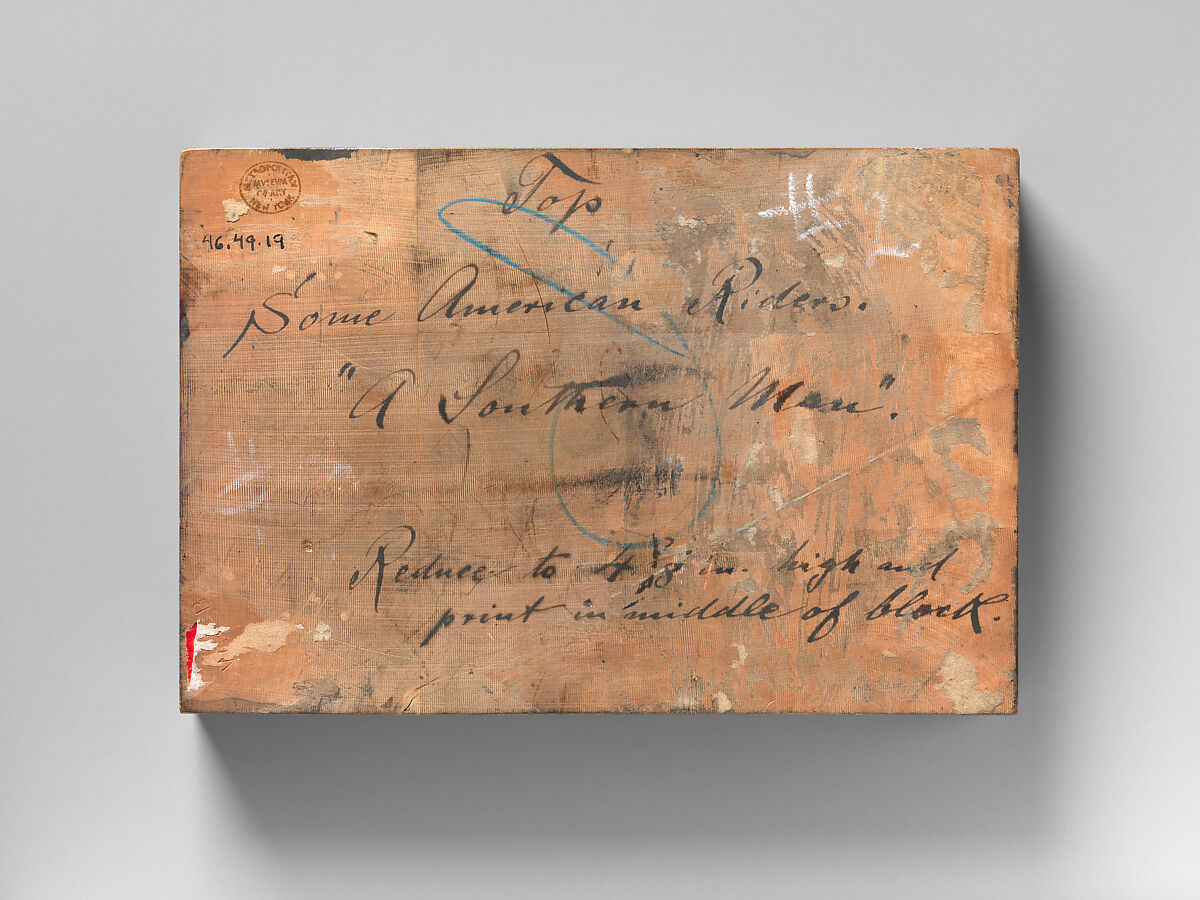 METROPOLITAN MUSEUM OF ART NEW YORK
46.49.19
Top
Some American Riders.
"A Southern Man".
Reduce to 4 in. high and
print in middle of block.